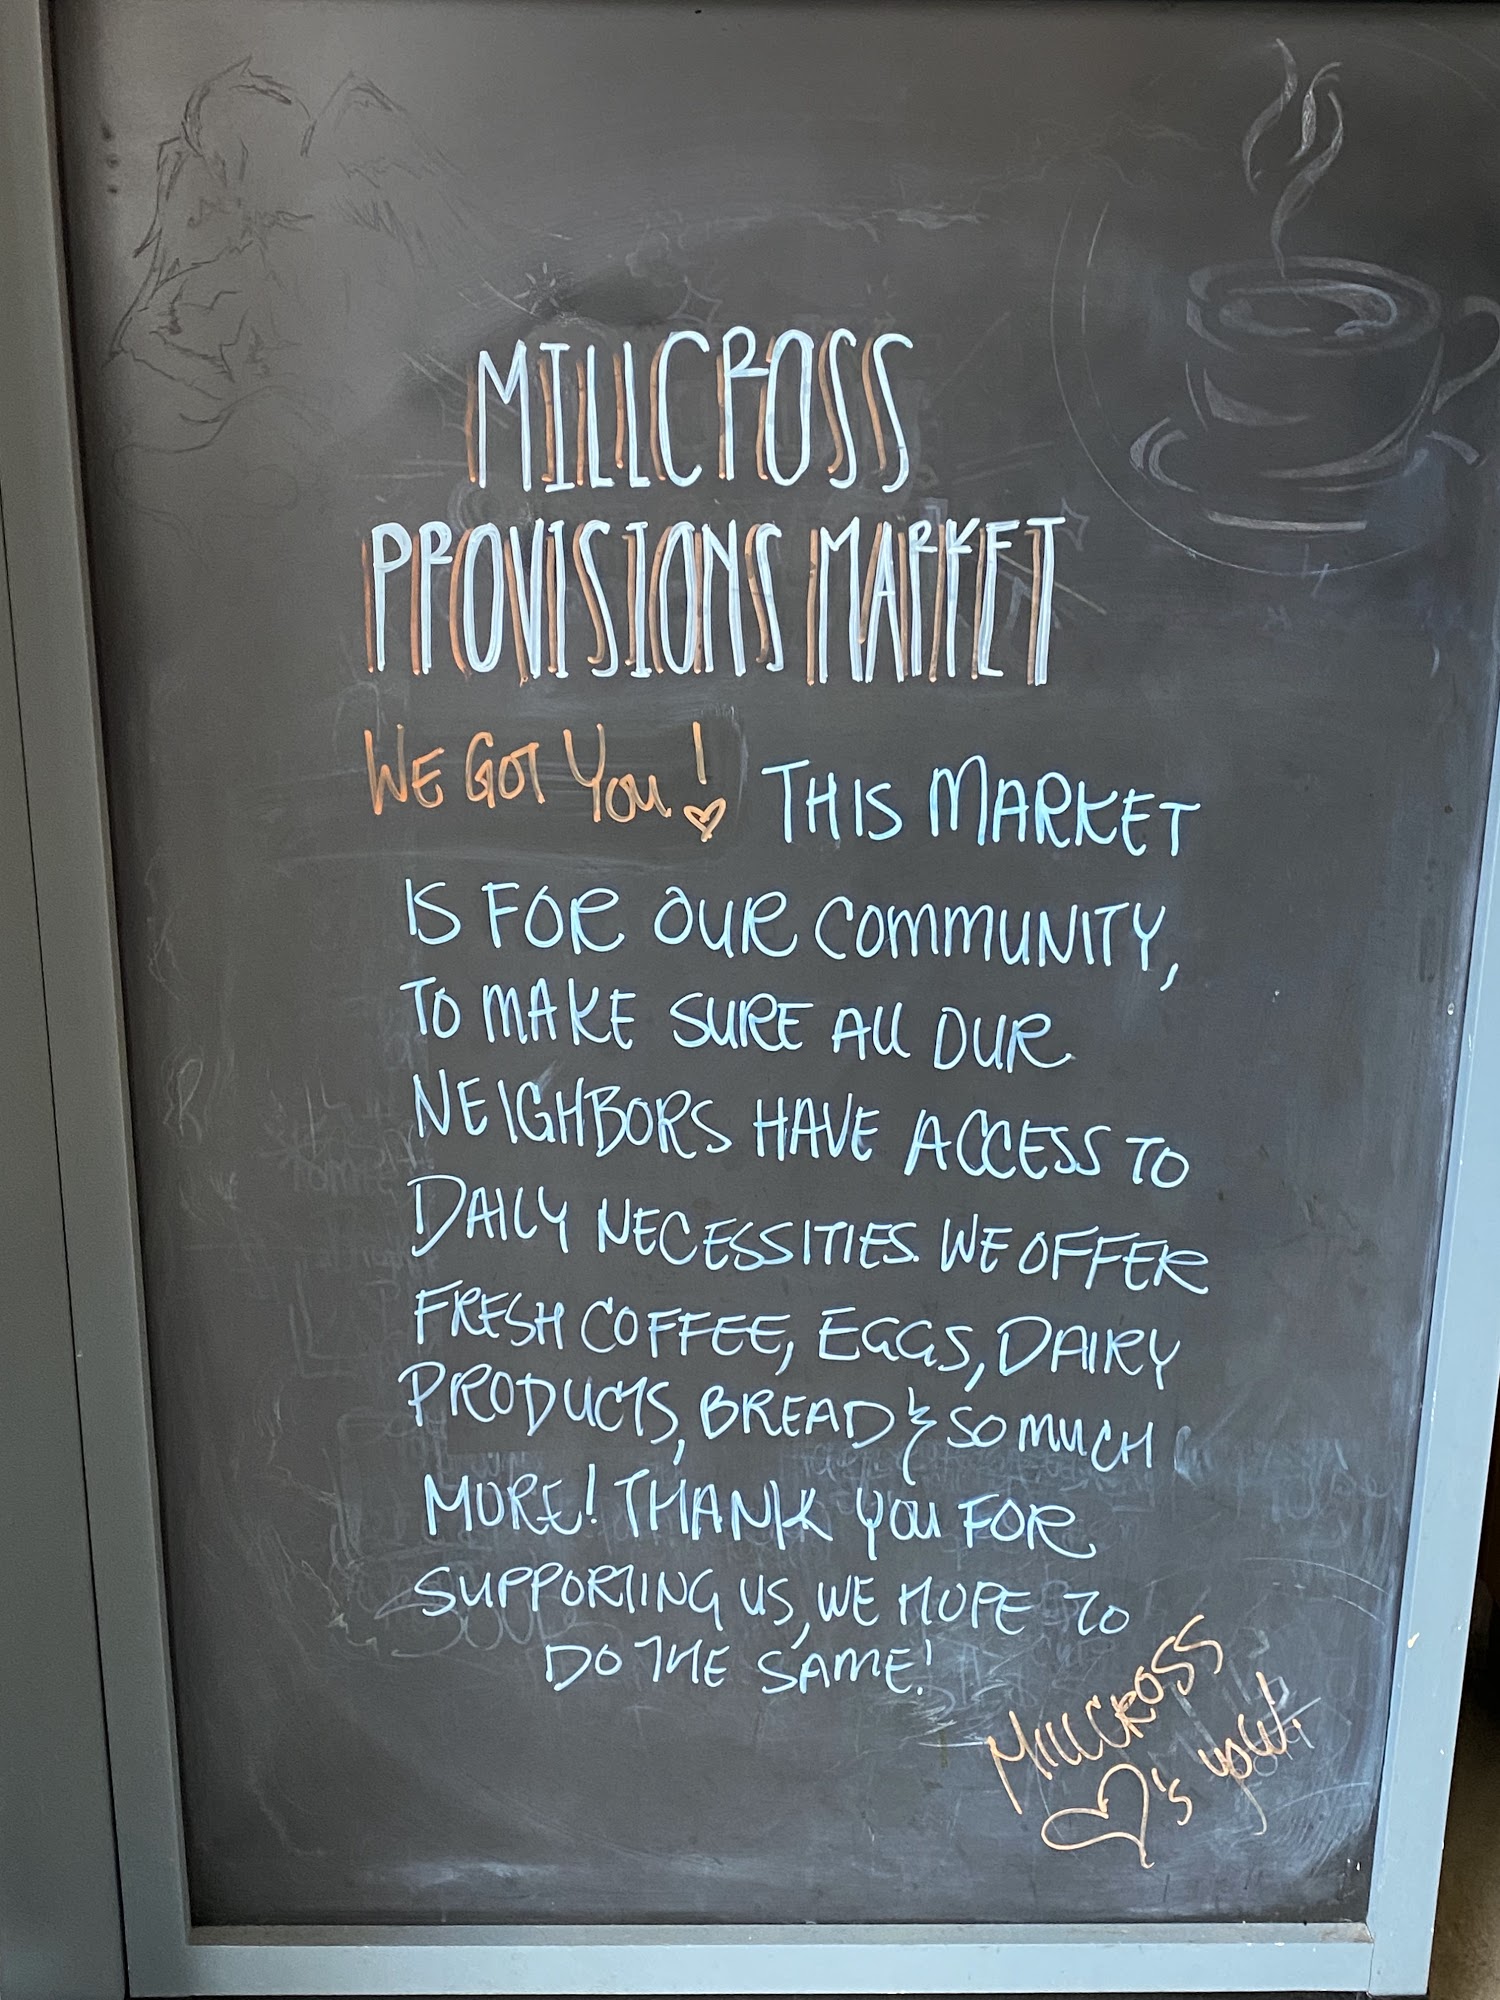 MILLCROSS
PROVISIONS MARKET
WE GOT YOU! THIS MARKET
IS FOR OUR COMMUNITY,
TO MAKE SURE ALL OUR
NEIGHBORS HAVE ACCESS TO
DAILY NECESSITIES. WE OFFER
FRESH COFFEE, EGGS, DAIRY
PRODUCTS, BREAD & SO MUCH
MORE! THANK YOU FOR
SUPPORTING US, WE HOPE TO
DO THE SAME!
MILLCROSS
♡'s you!
SOUP